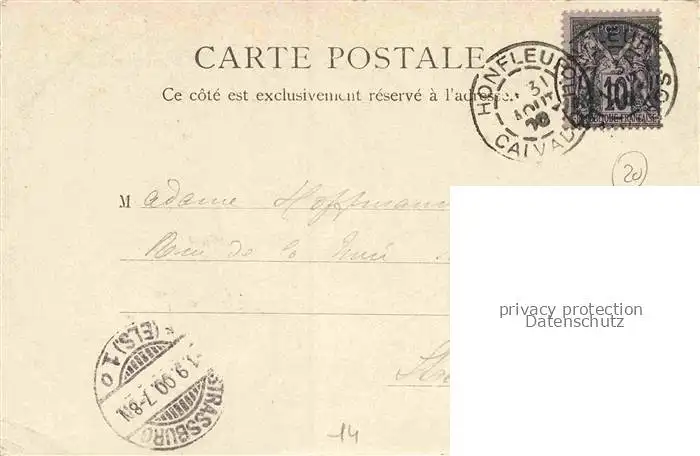 CARTE POSTALE
Ce côté est exclusivement réservé à l'adresse.
HONFLEUR
31
AOUT
CALVADOS
10
20
Madame Hoffmann
Rue de la
privacy protection
Datenschutz
STRASSBURG
1.9.00.7-8N.
* (ELS.) 1 o
14